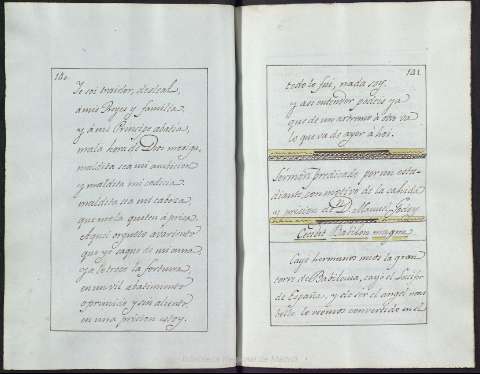 140.
Yo soi traidor, desleal,
à mis Reyes y familia
y à mi Principe
mala hora de Dios me sigue,
maldita sea mi ambicion
y maldita mi codicia
maldita sea mi cabeza
que no la quiten à prisa.
Aqui orgullo avariento
que yo saque de mi
ya le trocó la fortuna
en un vil abatimiento
oprimido, y sin aliento,
en una prision estoy.
141.
todo lo fui, nada soy.
y asi entender podeis ya
que de un extremo à otro va
lo que va de ayer a hoi.
Sermon predicado por un estu-
diante, con motivo de la cahida
y prision de D. Manuel Godoy
Cecidit Babilon magna
Cayó hermanos mios la gran
torre de Babilonia, cayó el
de España, y de ser el angel mas
bello, lo vemos convertido en el
Biblioteca Regional de Madrid